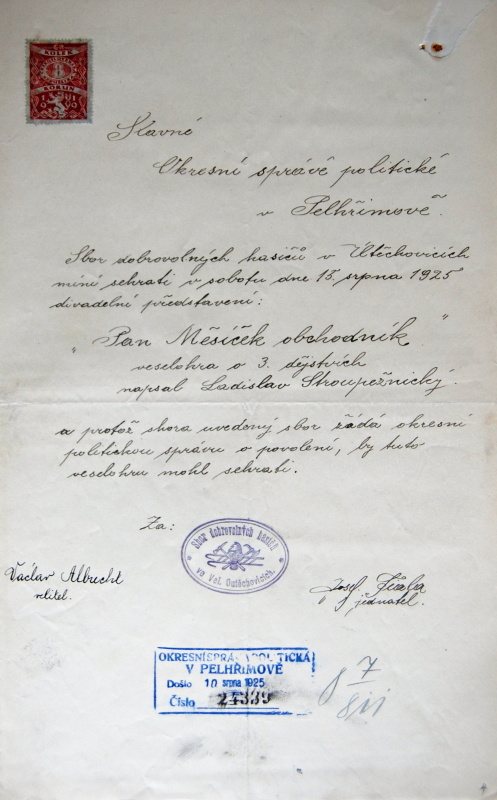 KOLEK
8
KORUN
1919
Slavné
Okresní správě politické
v Pelhřimově.
Sbor dobrovolných hasičů v Utěchovicích
míní sehrati v sobotu dne 15. srpna 1925
divadelní představení:
„Pan Měsíček obchodník."
veselohra o 3. dějstvích
napsal Ladislav Stroupežnický.
a protož shora uvedený sbor žádá okresní
politickou správu o povolení, by tuto
veselohru mohl sehrati.
Za:
Sbor dobrovolných hasičů
ve Vel. Outěchovicích.
Václav Albrecht
velitel.
Josef
jednatel.
OKRESNÍ SPRÁVA POLITICKÁ
V PELHŘIMOVĚ
Došlo 10 srpna 1925
Číslo 24339
7